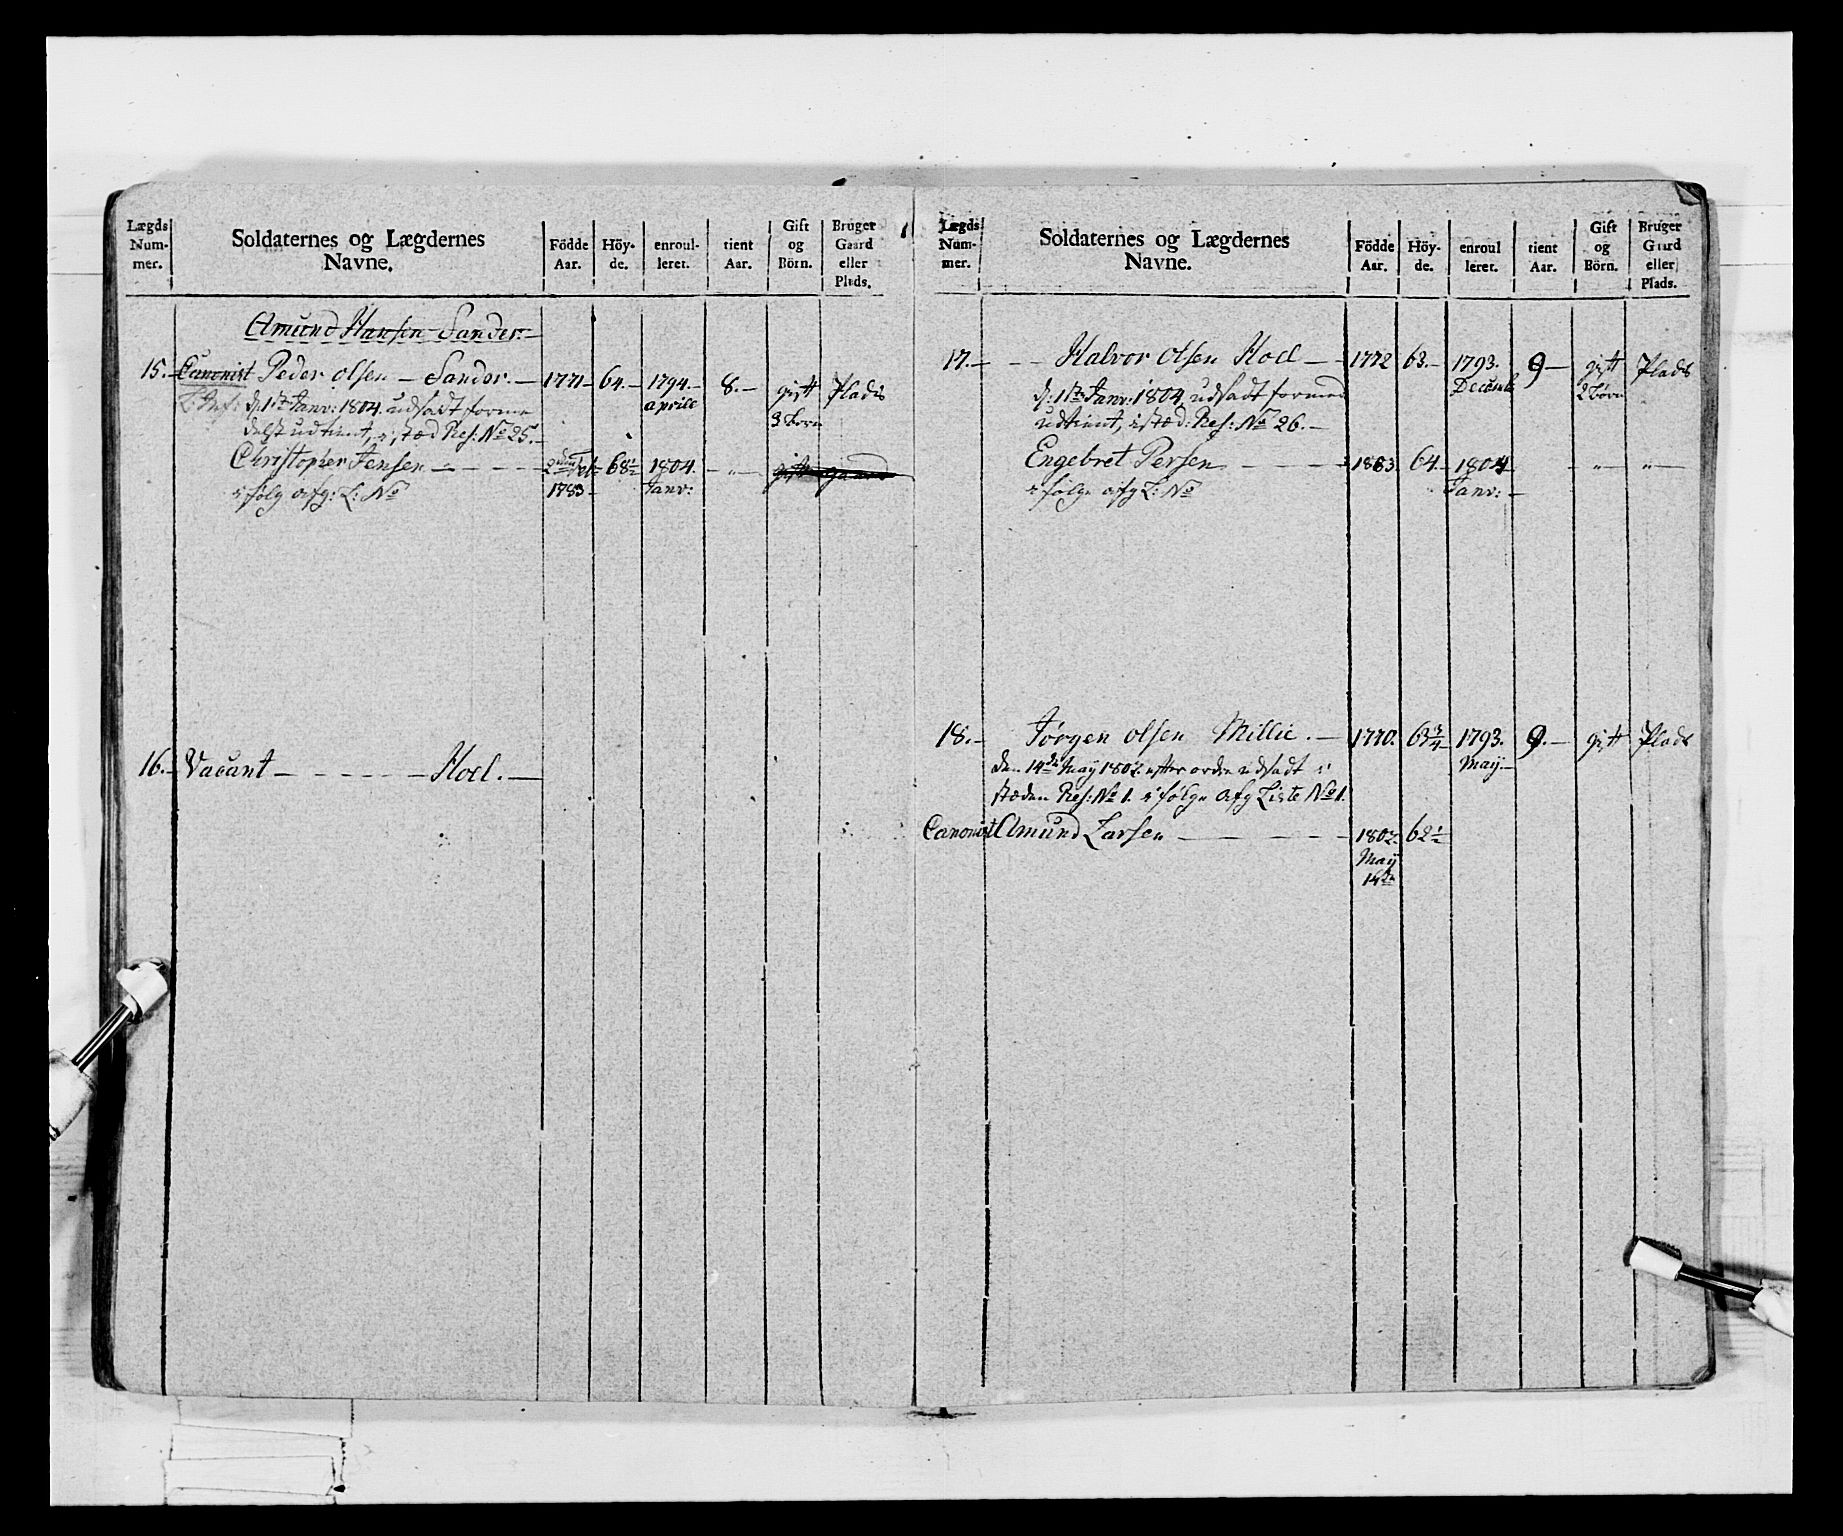 Lægds Num- mer.
Soldaternes og Lægdernes Navne.
Födde Aar.
Höy- de.
enroul- leret.
tient Aar.
Gift og Börn.
Bruger Gaard eller Plads.
Amund Hansen Sander
15. Canonist Peder Olsen Sander. 1771 64. 1794. 8. gift Plads
d: 1te Janv: 1804 udsadt forme aprill 3 børn
delst udtient, i stæd Res: No 25.
Christopher Jensen 68½ 1804
i følg afg: L: No 1783 Janv:
16. Vacant Hoel.
Lægds Num- mer.
Soldaternes og Lægdernes Navne.
Födde Aar.
Höy- de.
enroul leret.
tient Aar.
Gift og Börn.
Bruger Gaard eller Plads.
17. Halvor Olsen Hoel 1772 63. 1793. 9 gift Plads
d: 1te Janv: 1804 udsadt formed Decemb 2 børn
udtient, i stæd: Res: No 26.
Engebret Persen 64 1804 " "
i følge afg L: No Janv:
18. Jørgen Olsen Millie. 1770. 63¾ 1793. 9. gift Plads
den 14de May 1802 efter ordre udsadt i May
stæden Res: No 1. i følge afg Liste No 1.
Canonist Amund Larsen 1802 62½
May
14de